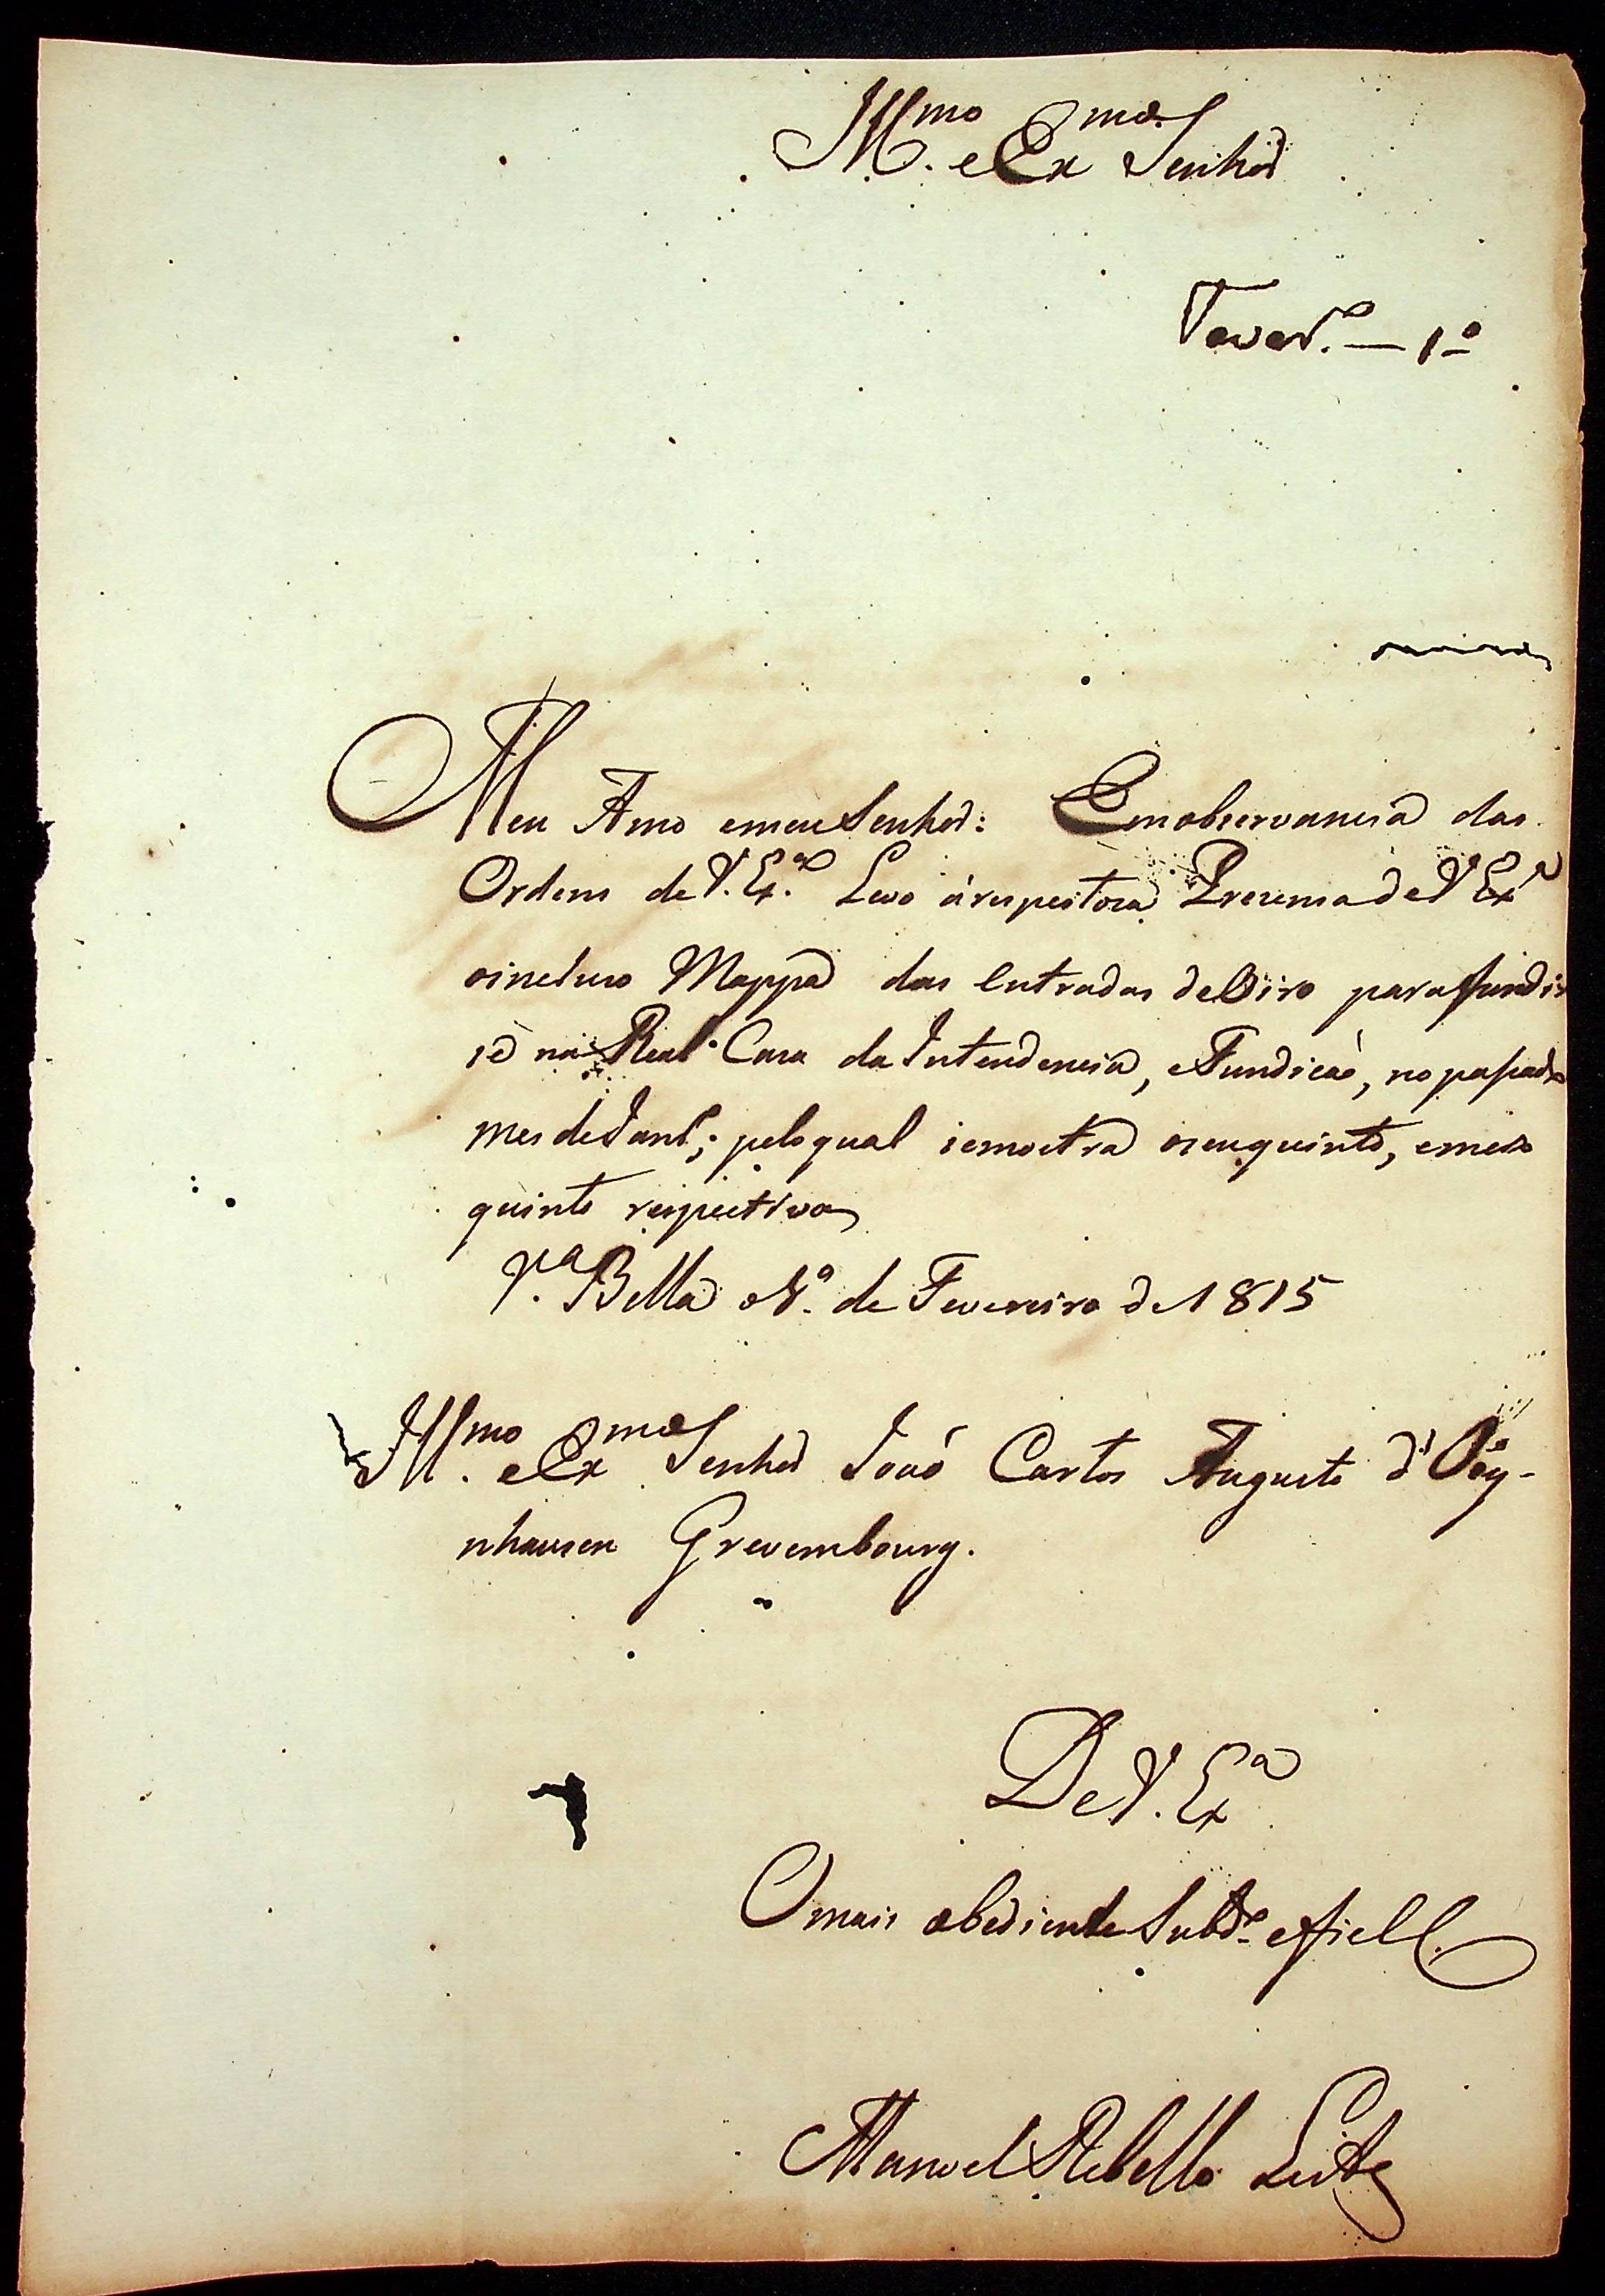 Ill.mo e Ex.mo Senhor
Fever.o — 1.o
Meu Amo e meu Senhor: Em observancia das
Ordens de V. Ex.a Levo á respeitoza Prezensa de V Ex.a
o incluzo Mappa das Entradas de Oiro para fundir
se na Real Caza da Intendencia, e Fundicaõ, no passado
mes de Janr.o; pelo qual se mostra o seu quinto, e meio
quinto respectivo
V.a Bella o 1.o de Fevereiro de 1815
Ill.mo e Ex.mo Senhor Joaõ Carlos Augusto d'Oey-
nhausen Grevembourg.
De V. Ex.a
O mais obediente Subd.o e fiel C.
Manoel Rebello Leite